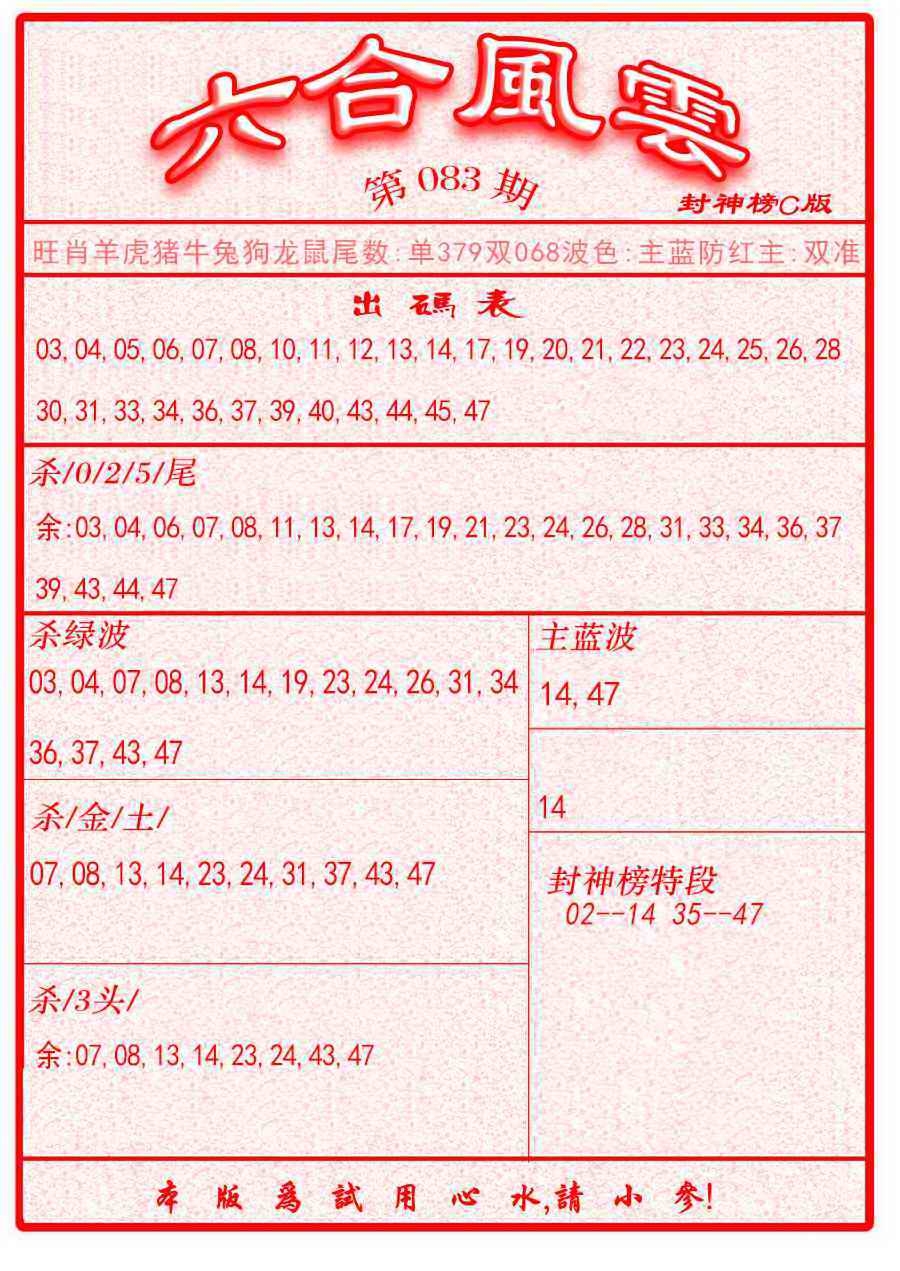 六合風雲
第083期
封神榜C版
旺肖羊虎猪牛兔狗龙鼠尾数:单379双068波色:主蓝防红主:双准
出碼表
03,04,05,06,07,08,10,11,12,13,14,17,19,20,21,22,23,24,25,26,28
30,31,33,34,36,37,39,40,43,44,45,47
杀/0/2/5/尾
余:03,04,06,07,08,11,13,14,17,19,21,23,24,26,28,31,33,34,36,37
39,43,44,47
杀绿波
03,04,07,08,13,14,19,23,24,26,31,34
36,37,43,47
杀/金/土/
07,08,13,14,23,24,31,37,43,47
杀/3头/
余:07,08,13,14,23,24,43,47
主蓝波
14,47
14
封神榜特段
02--14 35--47
本版爲試用心水,請小參!